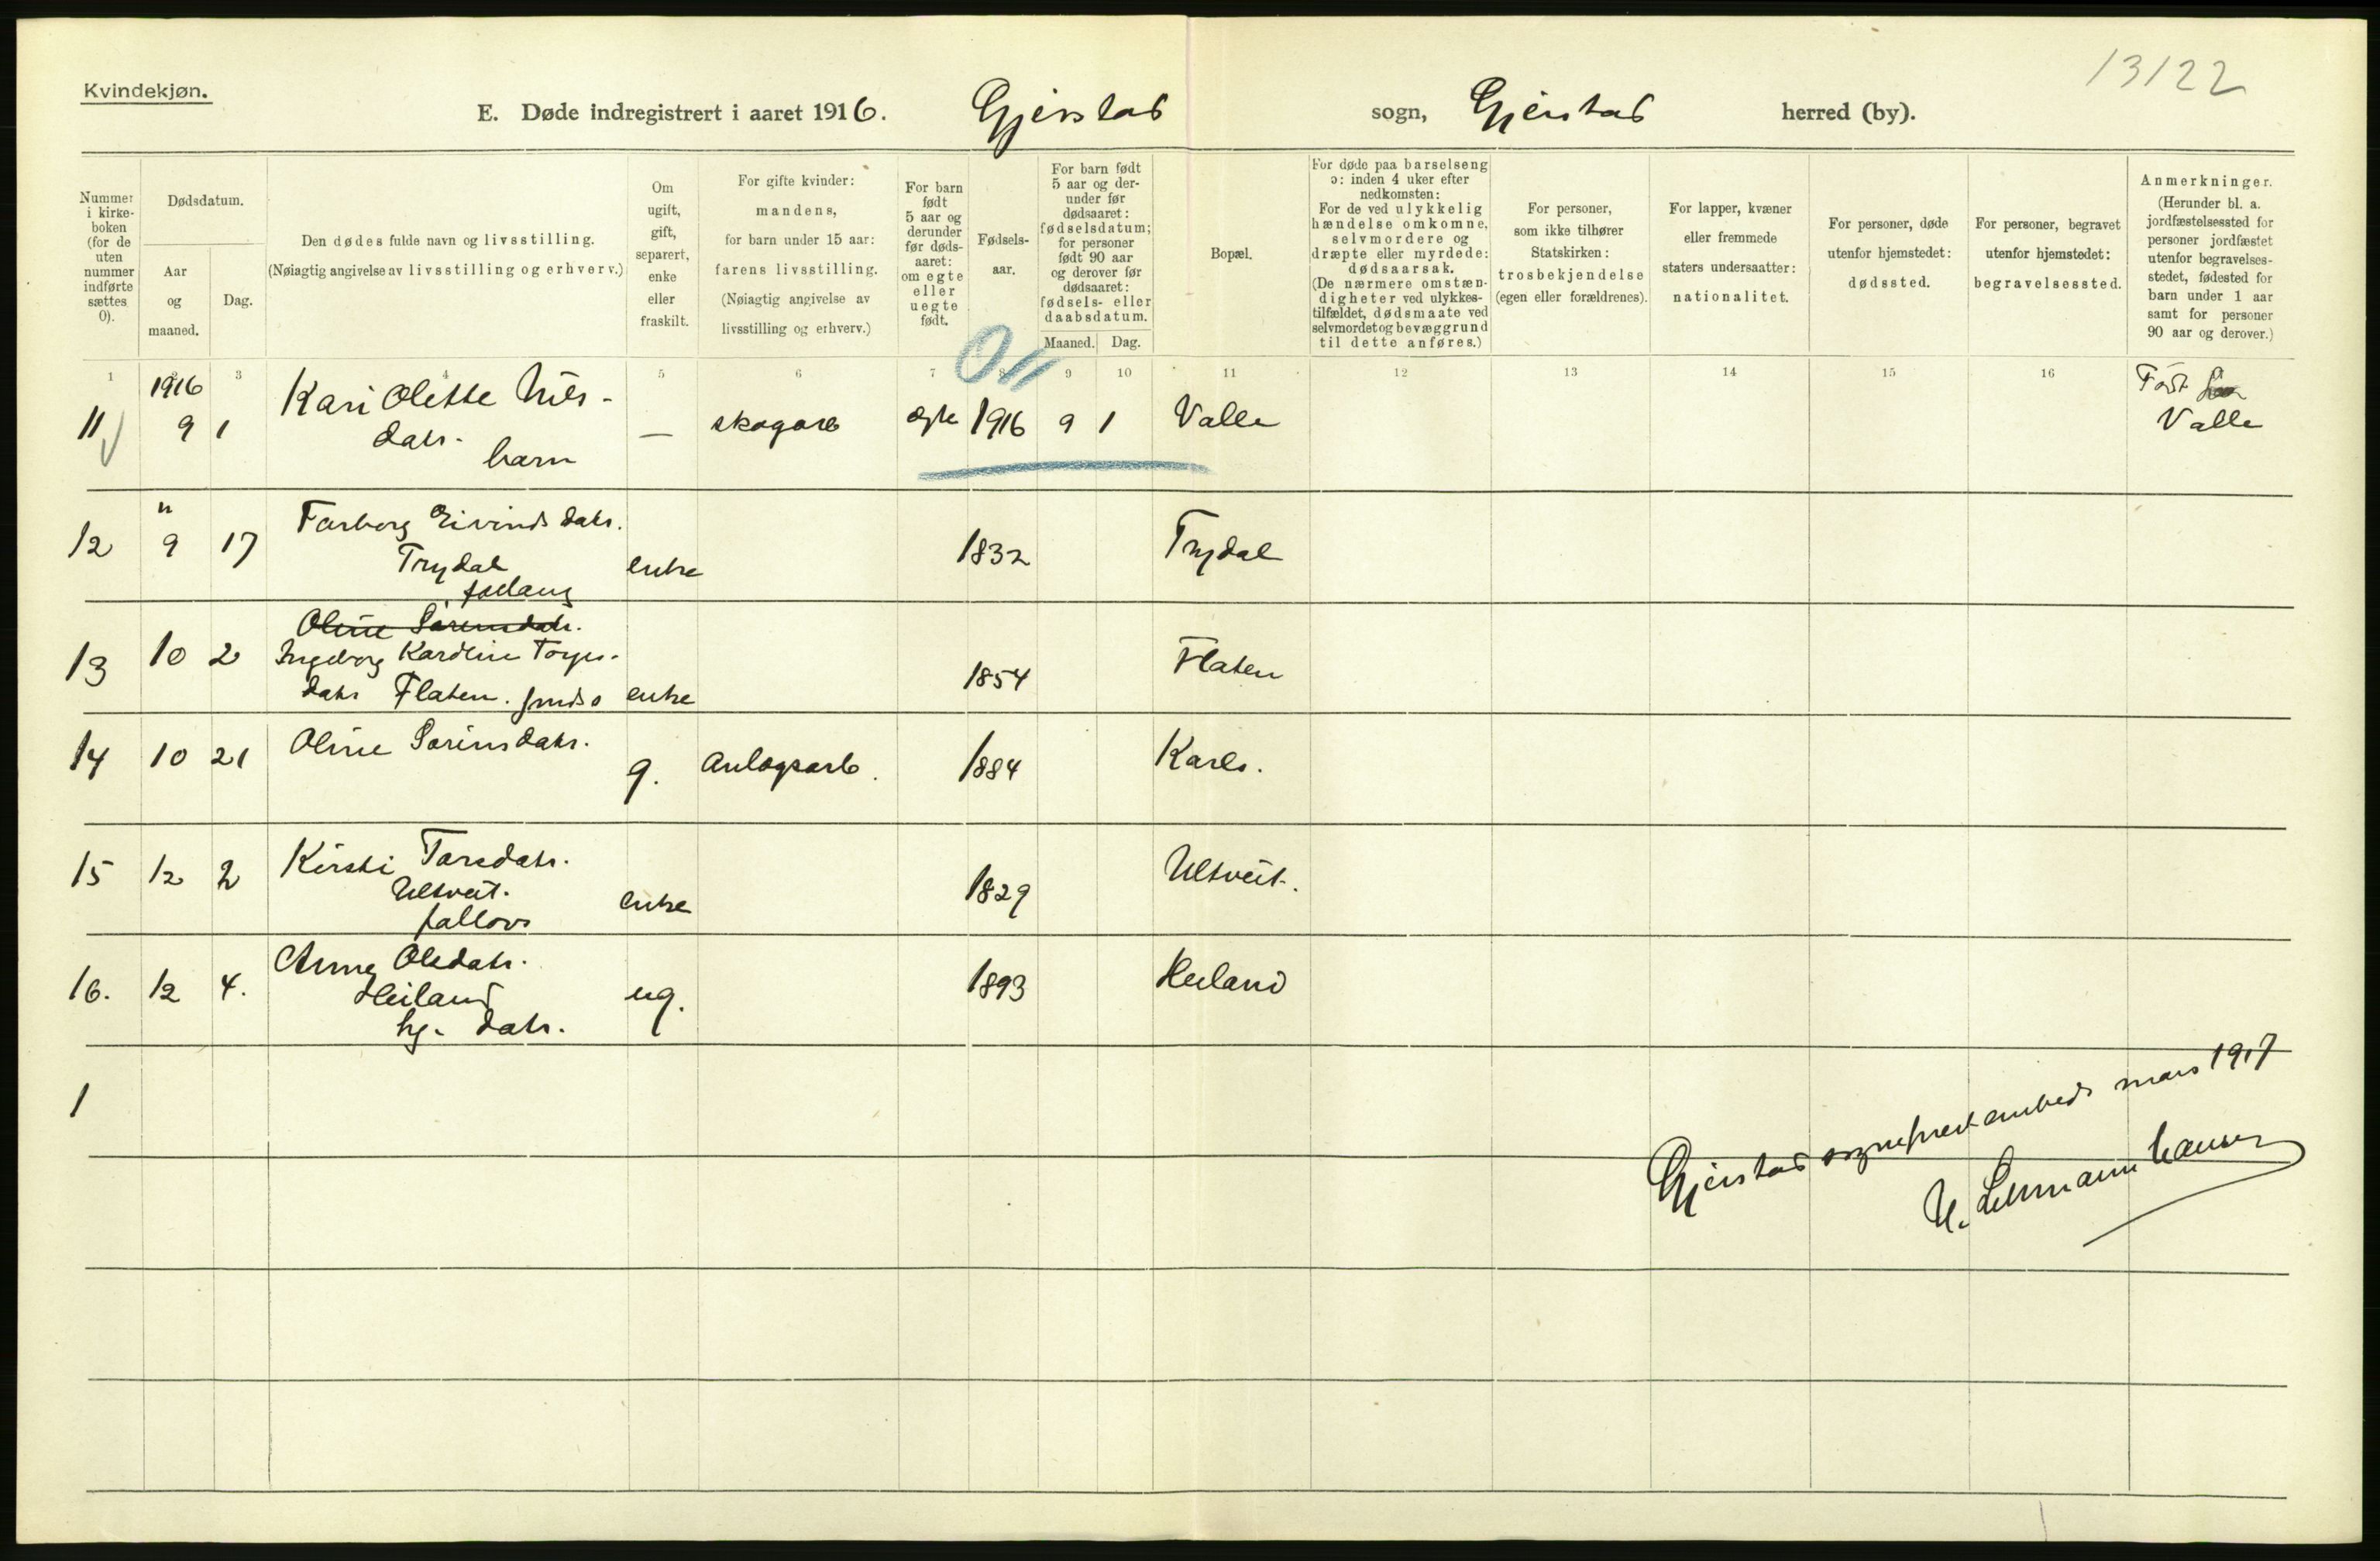 13122
Kvindekjøn.
E. Døde indregistrert i aaret 1916. Gjerstad sogn, Gjerstad herred (by).
Nummer i kirke-boken (for de uten nummer indførte sættes 0).
Dødsdatum.
Aar og maaned.
Dag.
Den dødes fulde navn og livsstilling.
(Nøiagtig angivelse av livsstilling og erhverv.)
Om ugift, gift, separert, enke eller fraskilt.
For gifte kvinder:
mandens,
for barn under 15 aar:
farens livsstilling.
(Nøiagtig angivelse av
livsstilling og erhverv.)
For barn født 5 aar og derunder før døds-aaret: om egte eller uegte født.
Fødsels-aar.
For barn født 5 aar og der-under før dødsaaret: fødselsdatum; for personer født 90 aar og derover før dødsaaret: fødsels- eller daabsdatum.
Maaned. Dag.
Bopæl.
For døde paa barselseng
ɔ: inden 4 uker efter
nedkomsten:
For de ved ulykkelig
hændelse omkomne,
selvmordere og
dræpte eller myrdede:
dødsaarsak.
(De nærmere omstæn-
digheter ved ulykkes-
tilfældet, dødsmaate ved
selvmordet og bevæggrund
til dette anføres.)
For personer,
som ikke tilhører
Statskirken:
trosbekjendelse
(egen eller forældrenes).
For lapper, kvæner
eller fremmede
staters undersaatter:
nationalitet.
For personer, døde
utenfor hjemstedet:
dødssted.
For personer, begravet
utenfor hjemstedet:
begravelsessted.
Anmerkninger.
(Herunder bl. a.
jordfæstelsessted for
personer jordfæstet
utenfor begravelses-
stedet, fødested for
barn under 1 aar
samt for personer
90 aar og derover.)
1 3 4 5 6 7 8 9 10 11 12 13 14 15 16
11 1916 9 1 Kari Olette Nils-
datr. barn — skogarb egte 1916 9 1 Valle Født Valle
12 " 9 17 Torborg Eivindsdatr.
Trydal enke 1832 Trydal
13 10 2 Oline Sørensdatr.
Ingeborg Karoline Torjus-
datr Flaten. enke 1854 Flaten
14 10 21 Oline Sørinsdatr. g. Anlægsarb. 1884 Karls.
15 12 2 Kirsti Tarsdatr.
Ultveit. enke 1829 Ultveit.
16. 12 4. Anne Olsdatr.
Heiland
hg. datr. ug. 1893 Heiland
1
Gjerstad sogneprestembede mars 1917